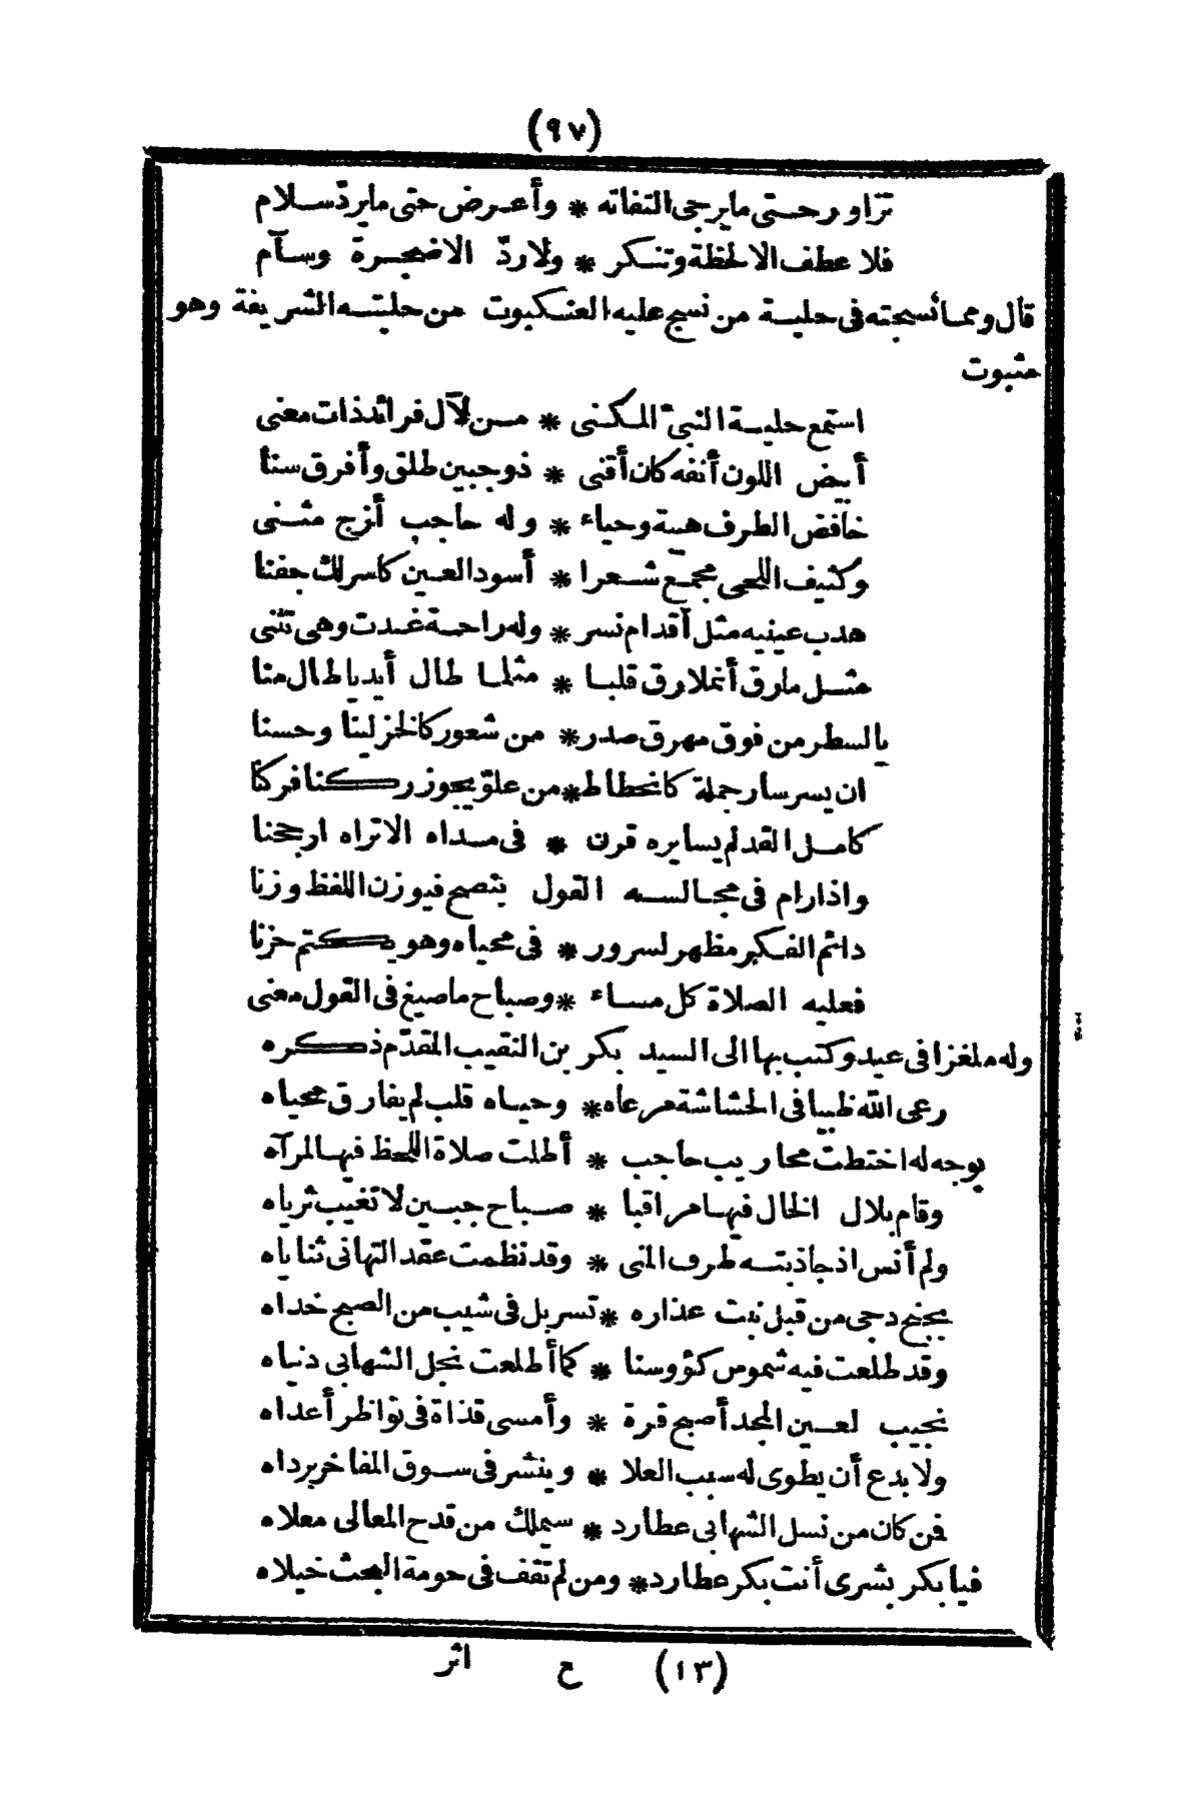 (٩٧)
تزاور حتى ما يرجى التفاته * وأعرض حتى ما يردّ سلام
فلا عطف الا لحظة وتنكر * ولا ردّ الا ضجرة وسآم
قال ومما نسجته فى حلية من نسج عليه العنكبوت من حليته الشريفة وهو
مثبوت
استمع حلية النبىّ المكنى * من لآل فرائد ذات معنى
أبيض اللون أنفه كان أقنى * ذو جبين طلق وأفرق سنا
خافض الطرف هيبة وحياء * وله حاجب أزج مثنى
وكثيف اللحى مجمّع شعرا * أسود العين كاسر لك جفنا
هدب عينيه مثل أقدام نسر * وله راحة غدت وهى تثنى
مثل ما رق أنملا رق قلبا * مثلما طال أيديا طال منا
يا لسطر من فوق مهرق صدر * من شعور كالخز لينا وحسنا
ان يسر سار جملة كانحطاط * من علوّ يجوز ركنا فركنا
كامل القد لم يسايره قرن * فى مداه الا تراه ارجحنا
واذا رام فى مجالسه القول يتصح فيوزن اللفظ وزنا
دائم الفكر مظهر لسرور * فى محياه وهو يكتم حزنا
فعليه الصلاة كل مساء * وصباح ما صيغ فى القول معنى
وله ملغزا فى عيد وكتب بها الى السيد بكر بن النقيب المقدّم ذكره
رعى الله ظبيا فى الحشاشة مرعاه * وحياه قلب لم يفارق محياه
بوجه له اختطت محاريب حاجب * أطلت صلاة اللحظ فيها لمرآه
وقام بلال الخال فيها مراقبا * صباح جبين لا تغيب ثرياه
ولم أنس اذ جاذبته طرف المنى * وقد نظمت عقد التهانى ثناياه
بجنح دجى من قبل نبت عذاره * تسربل فى شيب من الصبح خداه
وقد طلعت فيه شموس كؤوسنا * كما أطلعت نجل الشهابى دنياه
نجيب لعين المجد أصبح قرة * وأمسى قذاة فى نواظر أعداه
ولا بدع أن يطوى له سبب العلا * وينشر فى سوق المفاخر برداه
فمن كان من نسل الشهابى عطارد * سيملك من قدح المعالى معلاه
فيا بكر بشرى أنت بكر عطارد * ومن لم تقف فى حومة البحث خيلاه
(١٣) ح اثر